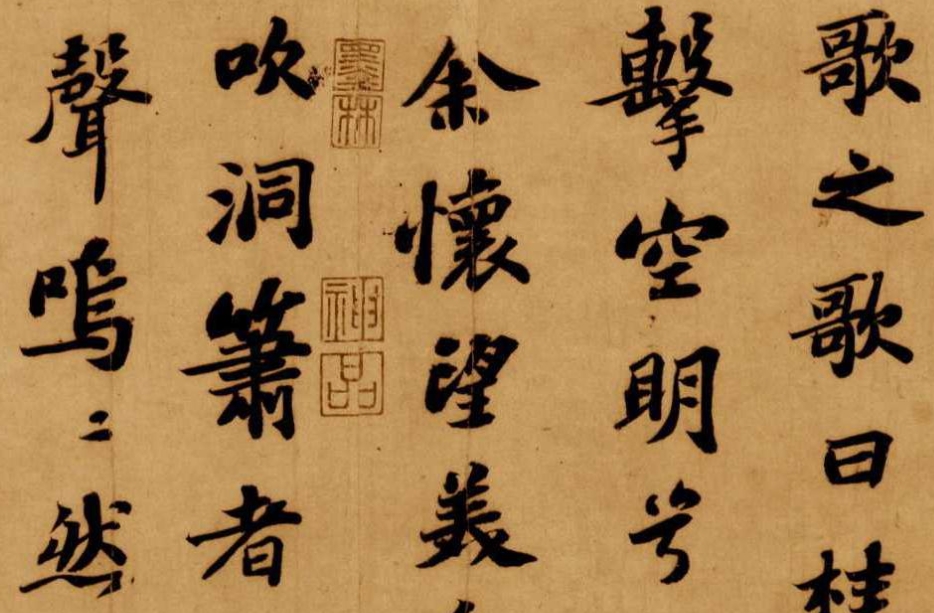 歌之歌曰桂
擊空明兮
余懷望美
吹洞簫者
聲嗚〻然
墨林
神品